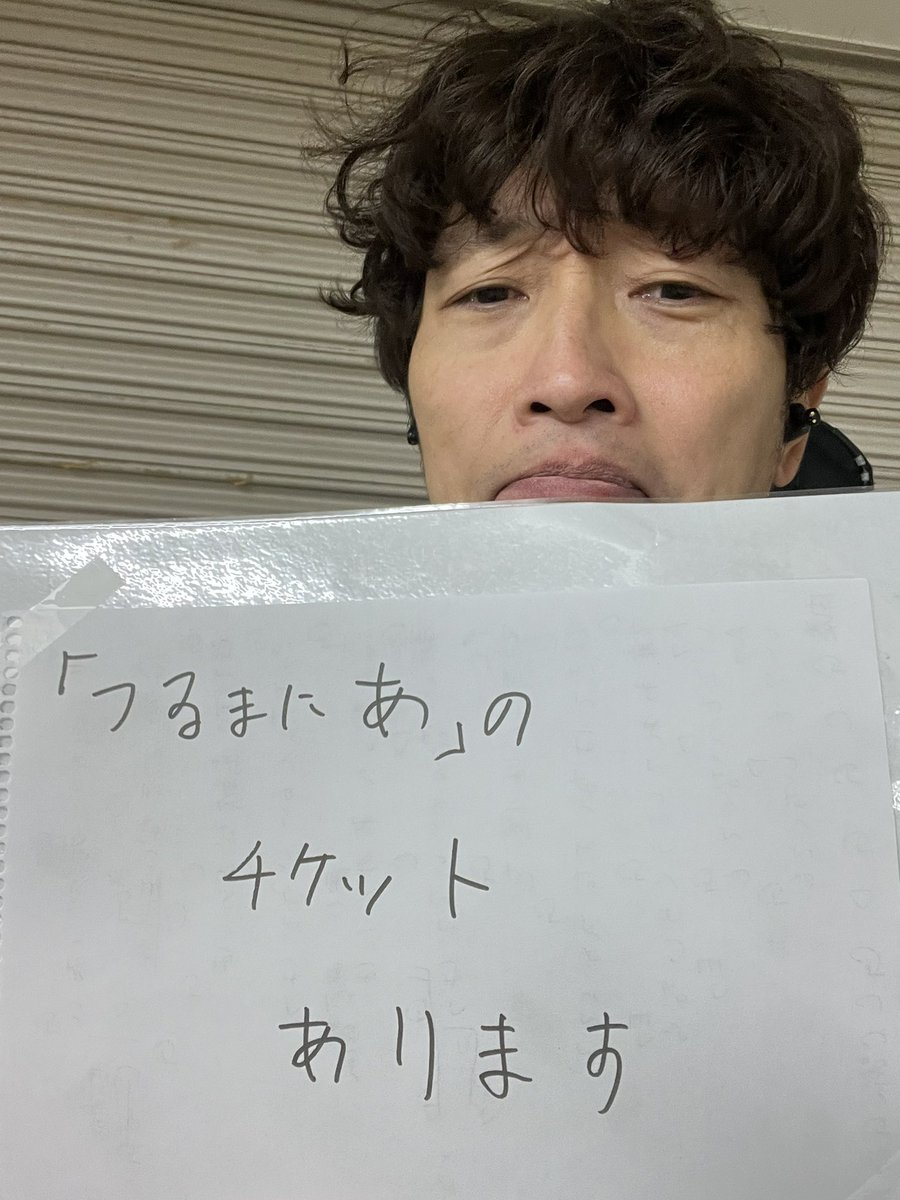 「つるまにあ」の
チケット
あります